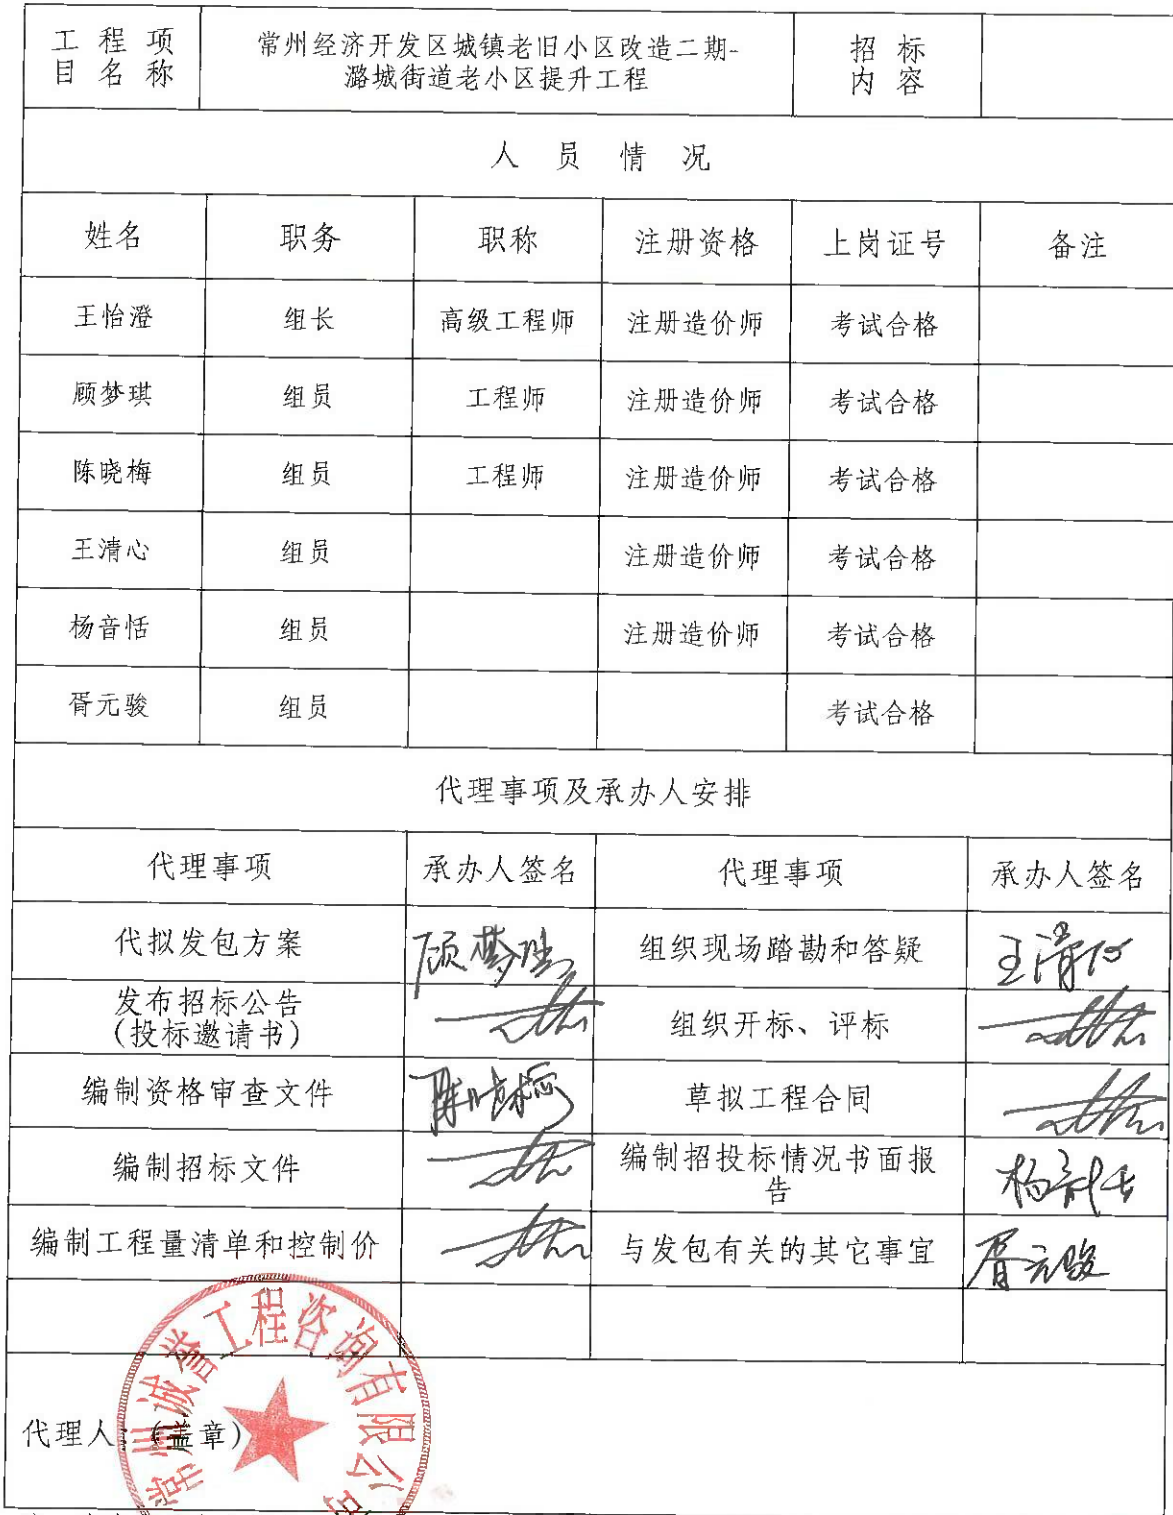 工程项 常州经济开发区城镇老旧小区改造二期- 招标
目名称 潞城街道老小区提升工程 内容
人员情况
姓名 职务 职称 注册资格 上岗证号 备注
王怡澄 组长 高级工程师 注册造价师 考试合格
顾梦琪 组员 工程师 注册造价师 考试合格
陈晓梅 组员 工程师 注册造价师 考试合格
王清心 组员 注册造价师 考试合格
杨音恬 组员 注册造价师 考试合格
胥元骏 组员 考试合格
代理事项及承办人安排
代理事项 承办人签名 代理事项 承办人签名
代拟发包方案 顾梦琪 组织现场踏勘和答疑 王清心
发布招标公告
(投标邀请书) 组织开标、评标
编制资格审查文件 陈晓梅 草拟工程合同
编制招标文件 编制招投标情况书面报
告 杨音恬
编制工程量清单和控制价 与发包有关的其它事宜 胥元骏
常州诚誉工程咨询有限公司
代理人:(盖章)